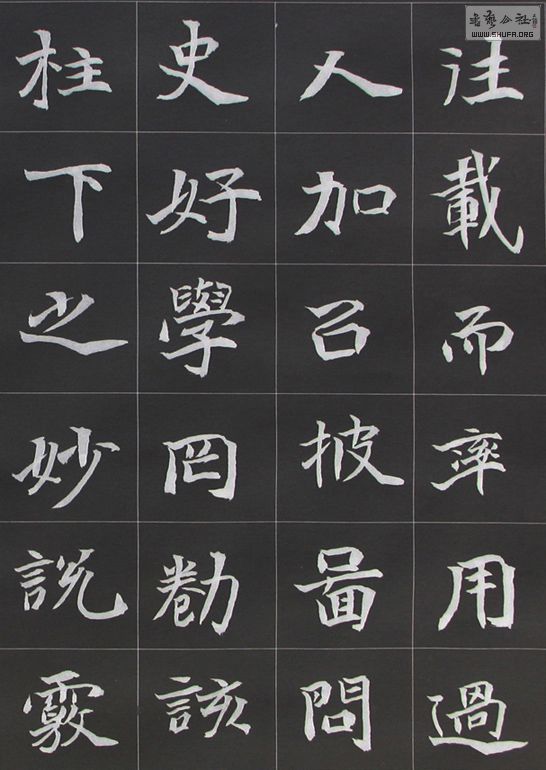 注載而率用過
人加㠯披圖問
史好學罔勌該
柱下之妙說覈
書藝公社
WWW.SHUFA.ORG